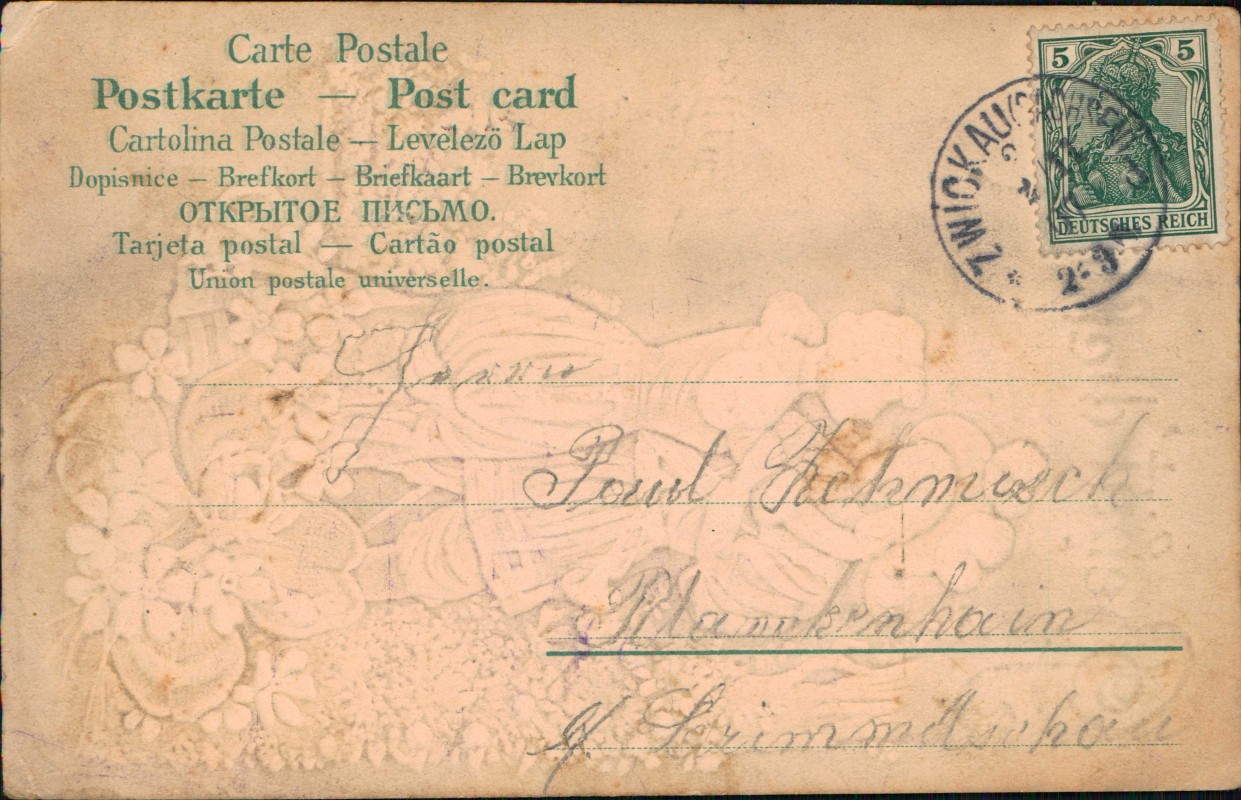 Carte Postale
Postkarte — Post card
Cartolina Postale — Levelező Lap
Dopisnice — Brefkort — Briefkaart — Brevkort
ОТКРЫТОЕ ПИСЬМО.
Tarjeta postal — Cartão postal
Union postale universelle.
5 5
DEUTSCHES REICH
ZWICKAU (SACHSEN)
Paul Zschmisch
Blankenhain
Crimmitschau